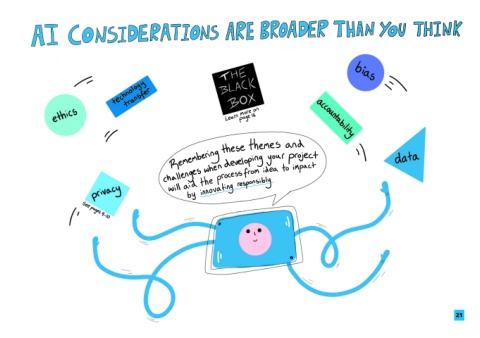 AI CONSIDERATIONS ARE BROADER THAN YOU THINK
ethics
technology
transfer
THE
BLACK
BOX
Learn more on
page 16
bias
accountability
data
privacy
Remembering these themes and
challenges when developing your project
will aid the process from idea to impact
by innovating responsibly
21